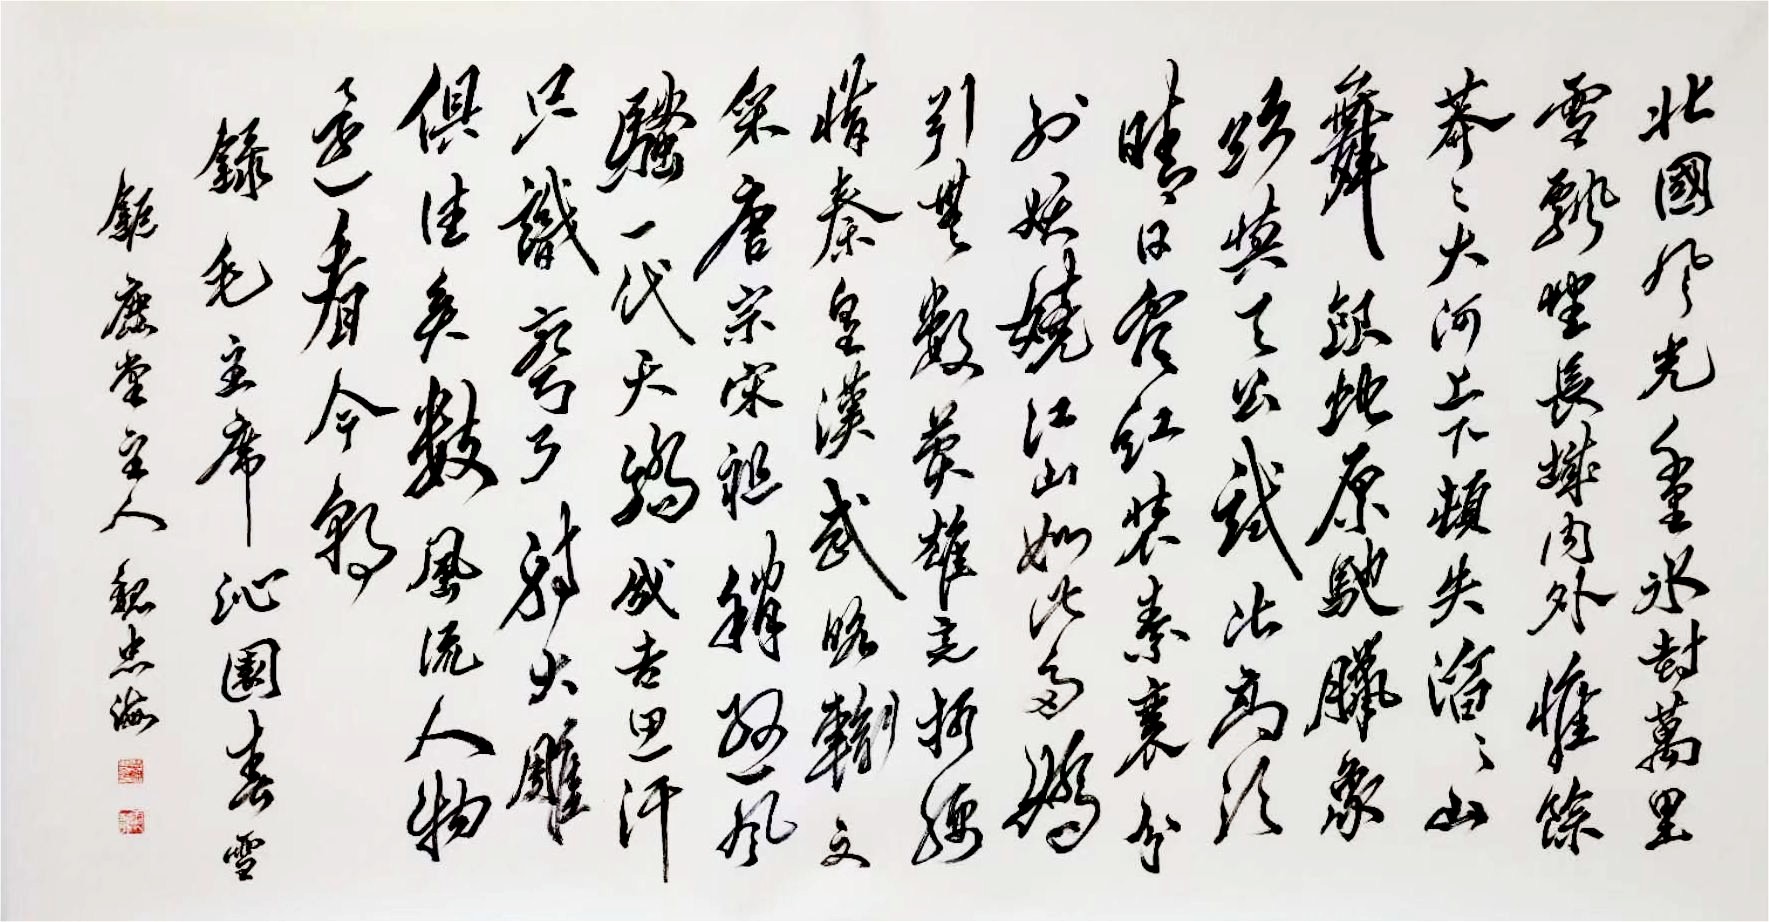 北國风光千里冰封萬里
雪飄望長城内外惟餘
莽〻大河上下頓失滔〻山
舞銀蛇原馳臘象
欲與天公試比高須
晴日看紅裝素裹分
外妖嬈江山如此多嬌
引無數英雄竞折腰
惜秦皇漢武略輸文
采唐宗宋祖稍遜风
騷一代天驕成吉思汗
只識彎弓射大雕
俱往矣數風流人物
還看今朝
錄毛主席沁園春雪
鉅鹿堂主人魏忠海